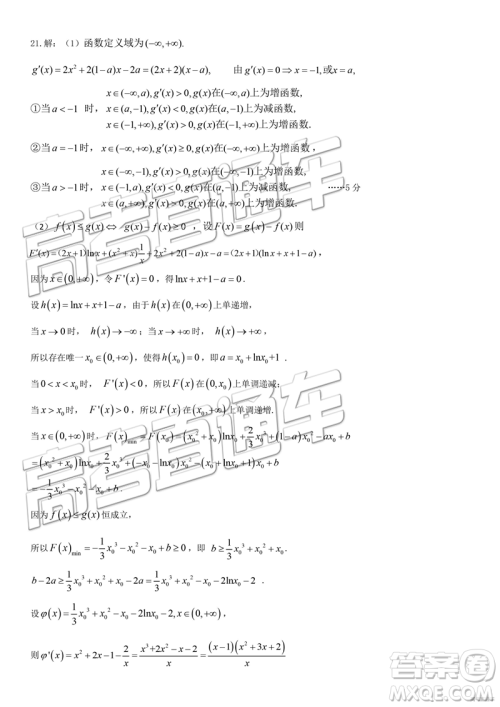 21.解：（1）函数定义域为(-∞,+∞).
g′(x)=2x²+2(1-a)x-2a=(2x+2)(x-a), 由g′(x)=0⇒x=-1,或x=a,
①当a<-1 时，x∈(-∞,a),g′(x)>0,g(x)在(-∞,a)上为增函数,
x∈(a,-1),g′(x)<0,g(x)在(a,-1)上为减函数,
x∈(-1,+∞),g′(x)>0,g(x)在(-1,+∞)上为增函数.
②当a=-1时，x∈(-∞,+∞),g′(x)≥0,g(x)在(-∞,+∞)上为增函数.
③当a>-1时，x∈(-1,a),g′(x)<0,g(x)在(-1,a)上为减函数, ……5分
（2）f(x)≤g(x)⇔g(x)-f(x)≥0，设F(x)=g(x)-f(x)则
F′(x)=(2x+1)lnx+(x²+x)·1/x+2x²+2(1-a)x-2a=(2x+1)(lnx+x+1-a),
因为x∈(0,+∞)，令F'(x)=0，得lnx+x+1-a=0.
设h(x)=lnx+x+1-a，由于h(x)在(0,+∞)上单递增，
当x→0时，h(x)→-∞；当x→+∞时，h(x)→+∞，
所以存在唯一x₀∈(0,+∞)，使得h(x₀)=0，即a=x₀+lnx₀+1 .
当0<x<x₀时，F'(x)<0，所以F(x)在(0,x₀)上单调递减；
当x>x₀时，F'(x)>0，所以F(x)在(x₀,+∞)上单调递增.
当x∈(0,+∞)时，F(x)min=F(x₀)=(x₀²+x₀)lnx₀+2/3x₀³+(1-a)x₀²-2ax₀+b
=(x₀²+x₀)lnx₀+2/3x₀³
=-1/3x₀³-x₀²-x₀+b .
因为f(x)≤g(x)恒成立，
所以F(x)min=-1/3x₀³-x₀²-x₀+b≥0，即 b≥1/3x₀³+x₀²+x₀.
b-2a≥1/3x₀³+x₀²+x₀-2a=1/3x₀³+x₀²-x₀-2lnx₀-2 .
设φ(x)=1/3x₀³+x₀²-x₀-2lnx-2,x∈(0,+∞)，
则φ'(x)=x²+2x-1-2/x=(x³+2x²-x-2)/x=(x-1)(x²+3x+2)/x
高考直通车
高考直通车
答案圈